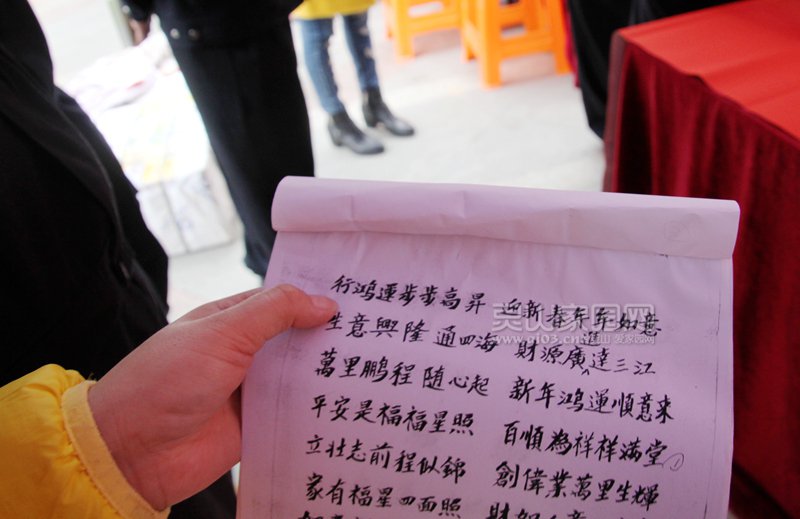 行鴻運步步高昇 迎新春年年如意
生意興隆通四海 財源廣進達三江
萬里鵬程隨心起 新年鴻運順意來
平安是福福星照 百順為祥祥滿堂
立壮志前程似錦 創偉業萬里生輝
家有福星四面照